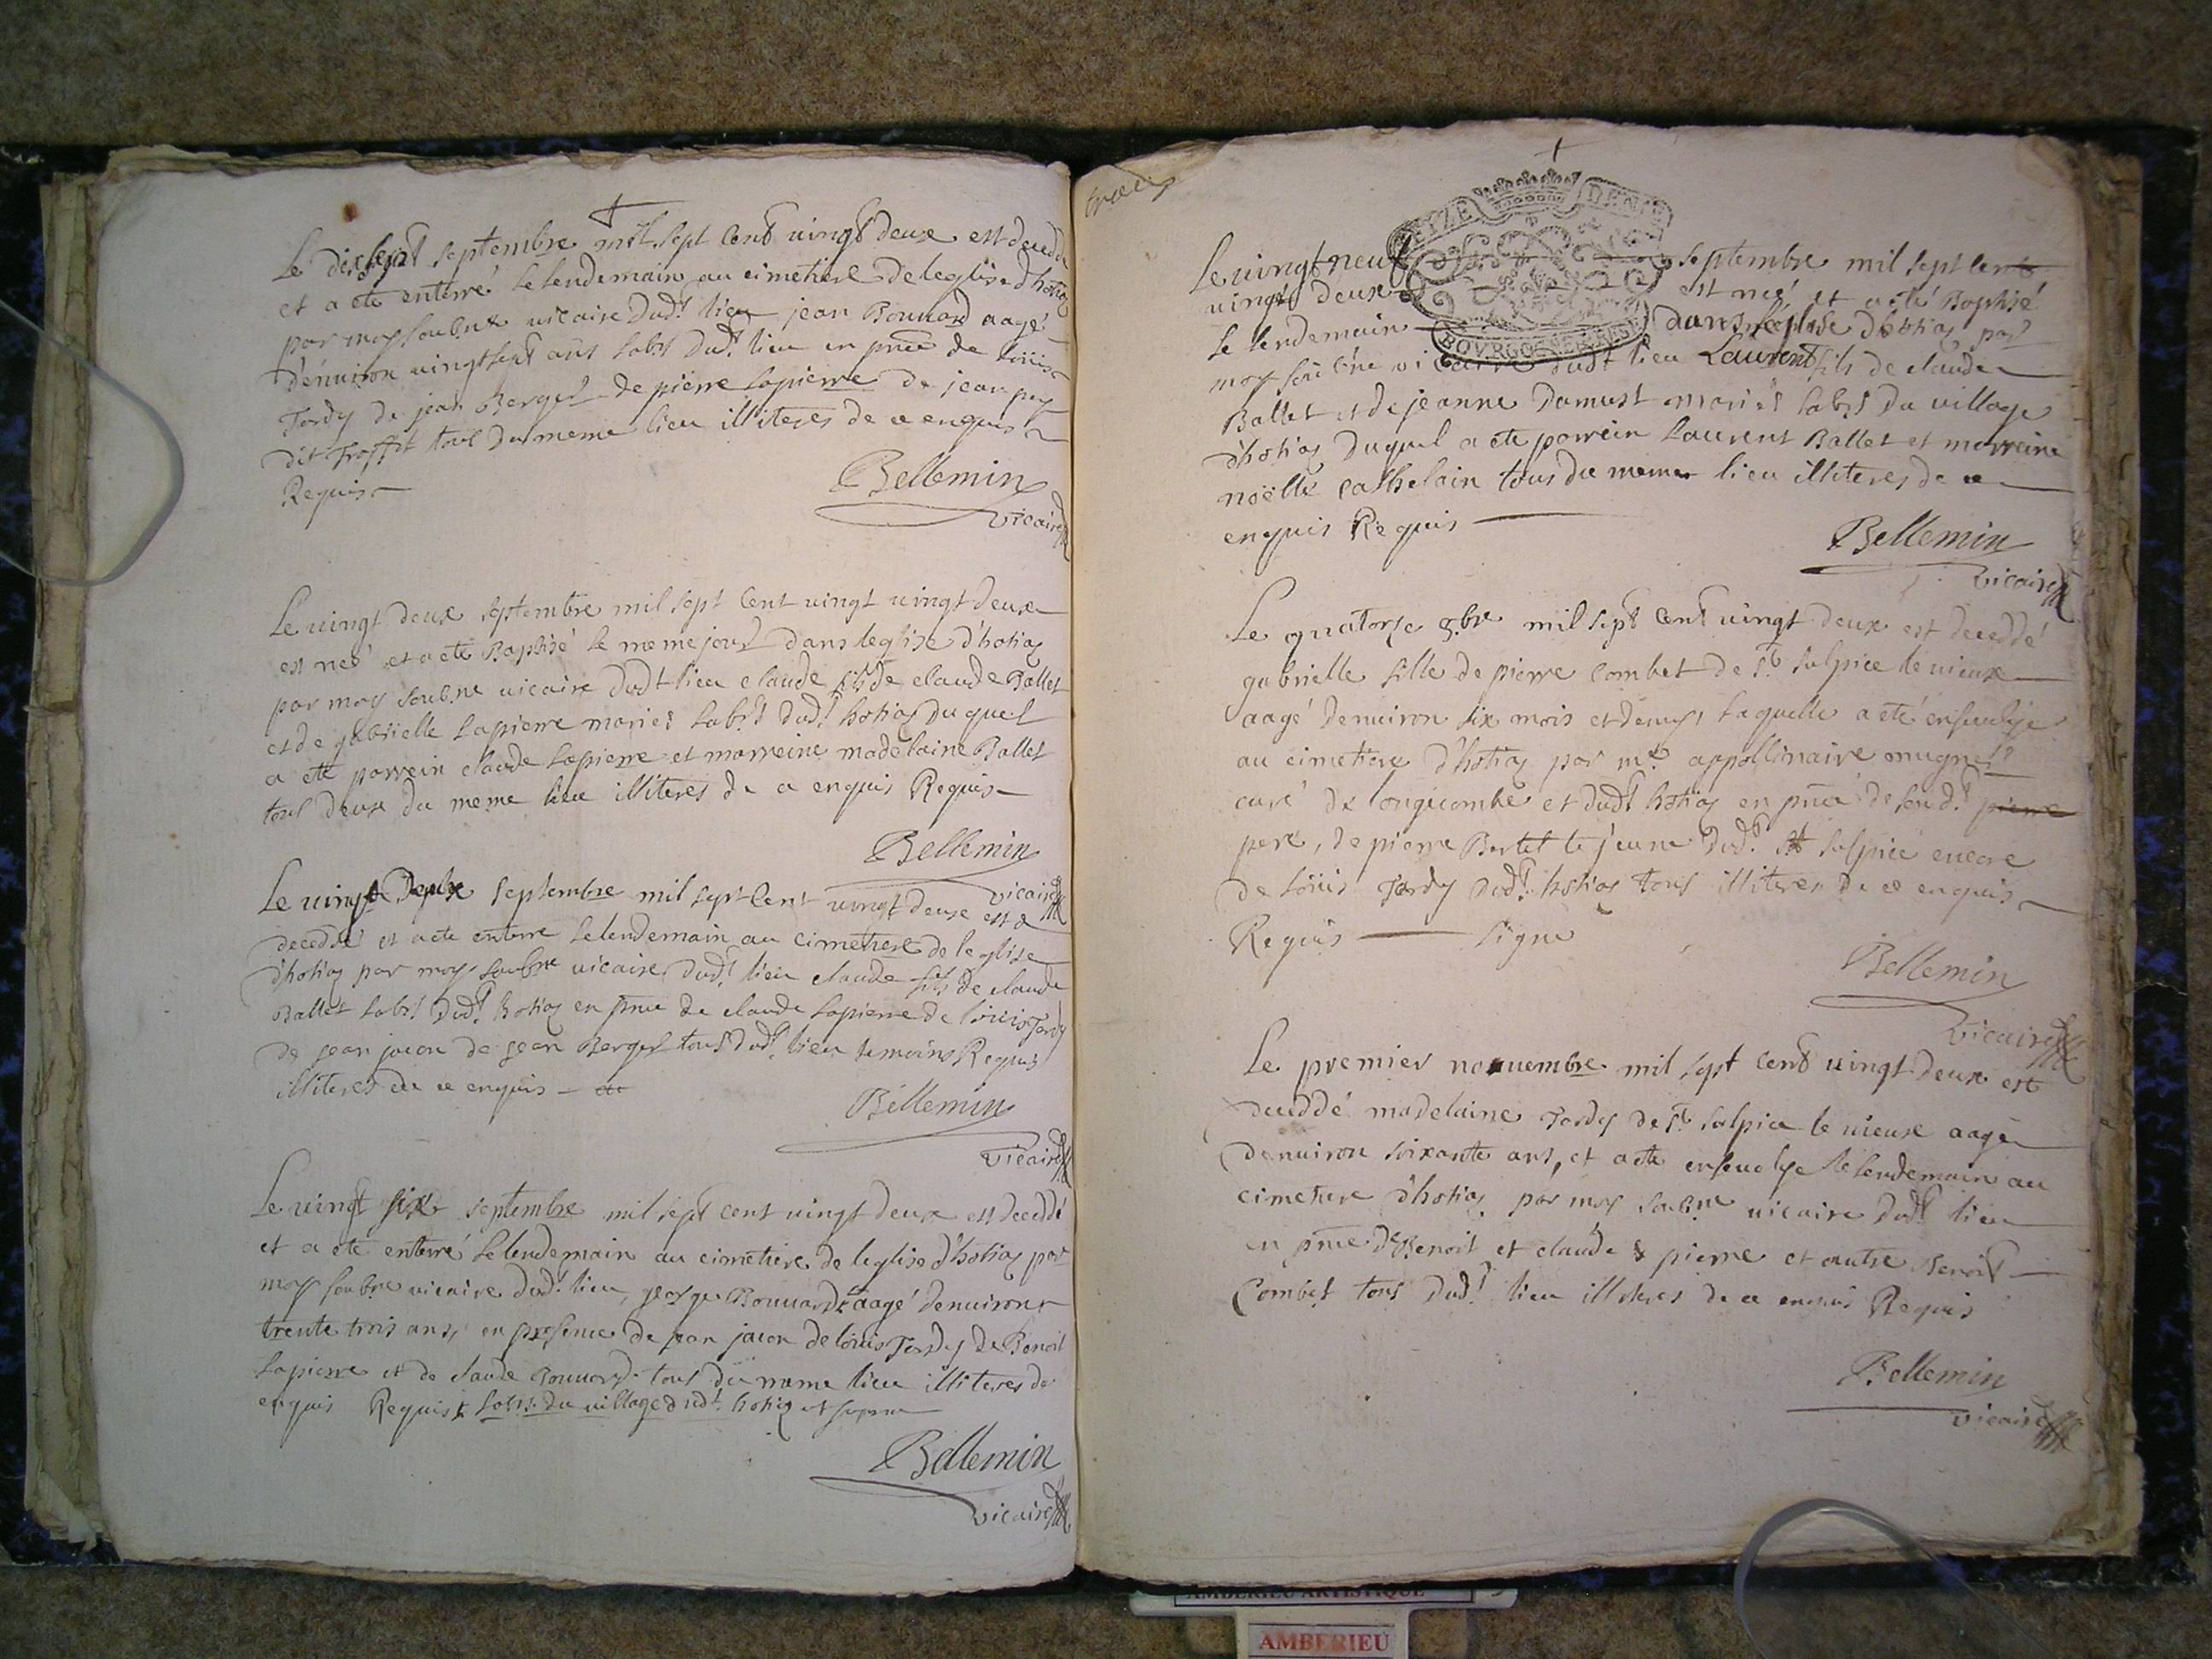 Le dix sept septembre mil sept cent vingt deux est decedé
et a ete enterré le lendemain au cimetiere de leglise d'hotiaz
par moy soubne vicaire dudt lieu jean Bonnard aagé
d'enuiron uingt sept ans labr dudt lieu en pnce de Loüis
Tardy de jean Berger de pierre Lapierre de jean
dit tous du meme lieu illiteres de ce enquis
Requis
Bellemin
vicaire
Le uingt deux septembre mil sept cent uingt uingt deux
est neé et a ete Baptisé le meme jour dans leglise d'hotiaz
par moy soubne uicaire dudt lieu claude fils de claude Ballet
et de gabrielle Lapierre mariés labrs dudt hotiaz duquel
a ete parrein claude Lapierre et marreine madelaine Ballet
tous deux du meme lieu illiteres de ce enquis Requis
Bellemin
vicaire
Le uingt deux septembre mil sept cent uingt deux est
decedde et a ete enterre le lendemain au cimetiere de leglise
d'hotiaz par moy soubne uicaire dudt lieu claude fils de claude
Ballet labr dudt hotiaz en pnce de claude Lapierre de Loüis Tardy
de jean jacon de jean Berger tous dudt lieu temoins Requis
illiteres de ce enquis
Bellemin
vicaire
Le uingt six septembre mil sept cent uingt deux est deceddé
et a ete enterré le lendemain au cimetiere de leglise d'hotiaz par
moy soubne uicaire dudt lieu, george Bonnard aagé denuiron
trente trois ans, en presence de jean jacon de loüis Tardy de Benoit
Lapierre et de claude Bonnard tous du meme lieu illiteres de
enquis Requis labr du village dudt hotiaz
Bellemin
vicaire
TREIZE DENIE
BOVRGOGNE BRESSE
Le uingt neuf septembre mil sept cent
uingt deux est neé et a eté Baptisé
le lendemain dans leglise d'hotiaz par
moy soubne vicaire dudt lieu Laurent fils de claude
Ballet et de jeanne Damust mariés labrs du village
d'hotiaz duquel a ete parrein Laurent Ballet et marreine
noëlle Cathelain tous du meme lieu illiteres de ce
enquis Requis
Bellemin
vicaire
Le quatorze 8.bre mil sept cent uingt deux est deceddé
gabrielle fille de pierre Combet de St sulpice le uieux
aagé denuiron six mois et demy, laquelle a eté enseuelye
au cimetiere d'hotiaz par mre appollinaire mugnet
curé de longecombe et dudt hotiaz en pnce de sondt pierre
pere, de pierre Bertet le jeune dudt St sulpice encore
de Loüis Tardy dudt hotiaz tous illiteres de ce enquis
Requis signe
Bellemin
vicaire
Le premier nouuembre mil sept cent uingt deux est
deceddé madelaine Tardy de St sulpice le uieux aagé
denuiron soixante ans, et a ete enseuelye le lendemain au
cimetiere d'hotiaz par moy soubne uicaire dudt lieu
en pnce de Benoit et claude & pierre et autre Benoit
Combet tous dudt lieu illiteres de ce enquis Requis
Bellemin
vicaire
AMBERIEU ARTISTIQUE
AMBERIEU